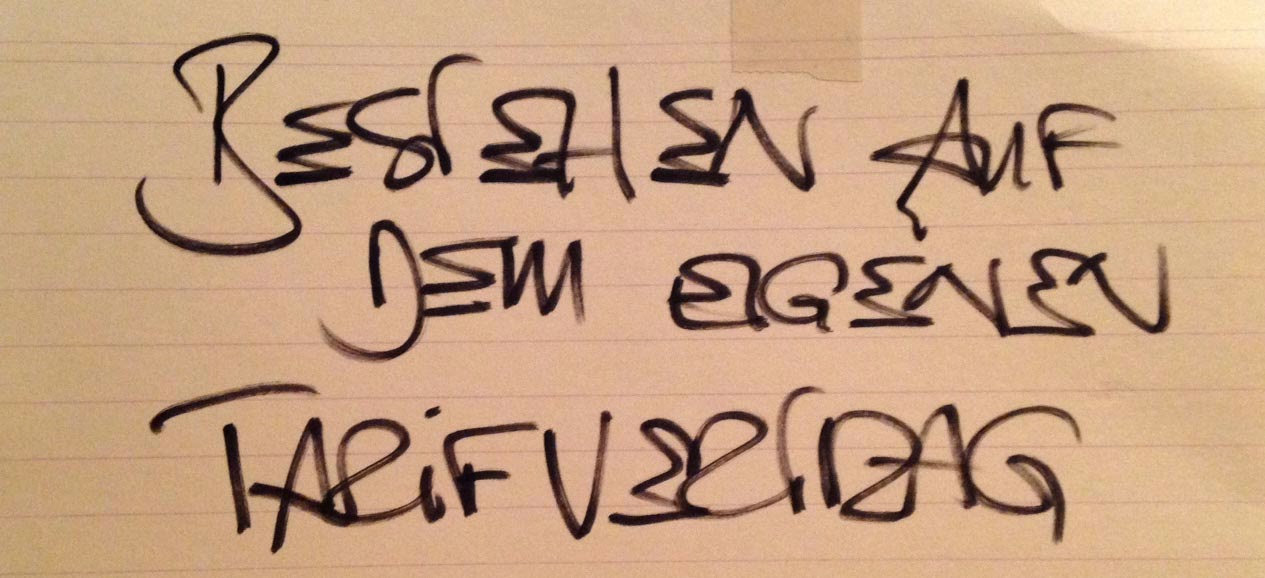 BESTEHEN AUF
DEM EIGENEN
TARiFVERTRAG